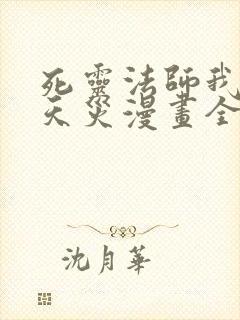 死靈法師我
天災漫畫全
沈月華